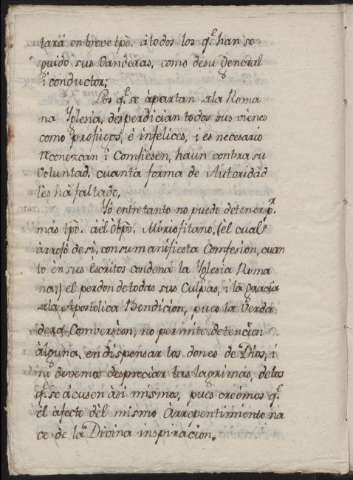 tarà en breve tpõ. à todos los q.e han se
guido sus Vanderas, como de su General
i conductor;
Los q.e se apartan de la Roma
na Yglesia, desperdician todos sus vienes
como profugos, é infelices, i es necesario
Reconozcan i Comfiesen, haun contra su
Voluntad, cuanta forma de Autoridad
les hà faltado.
Yò entretanto no puedo detener p.r
mas tpõ. àel Obpõ. (el cual
arrojò de si, con su manifiesta Comfesion, cuan
to en sus escritos condena la Yglesia Roma
na,) el perdon de todas sus Culpas, i la gracia
de la Apostolica Bendicion, pues la Verda
dera Conversion, no permite detencion
alguna, en dispensar los dones de Dios, i
ni devemos despreciar las lagrimas, de los
q.e se acusen asi mismos, pues creèmos q.e
el afecto dèl mismo Arrepentimiento na
ce de la Divina inspiracion.